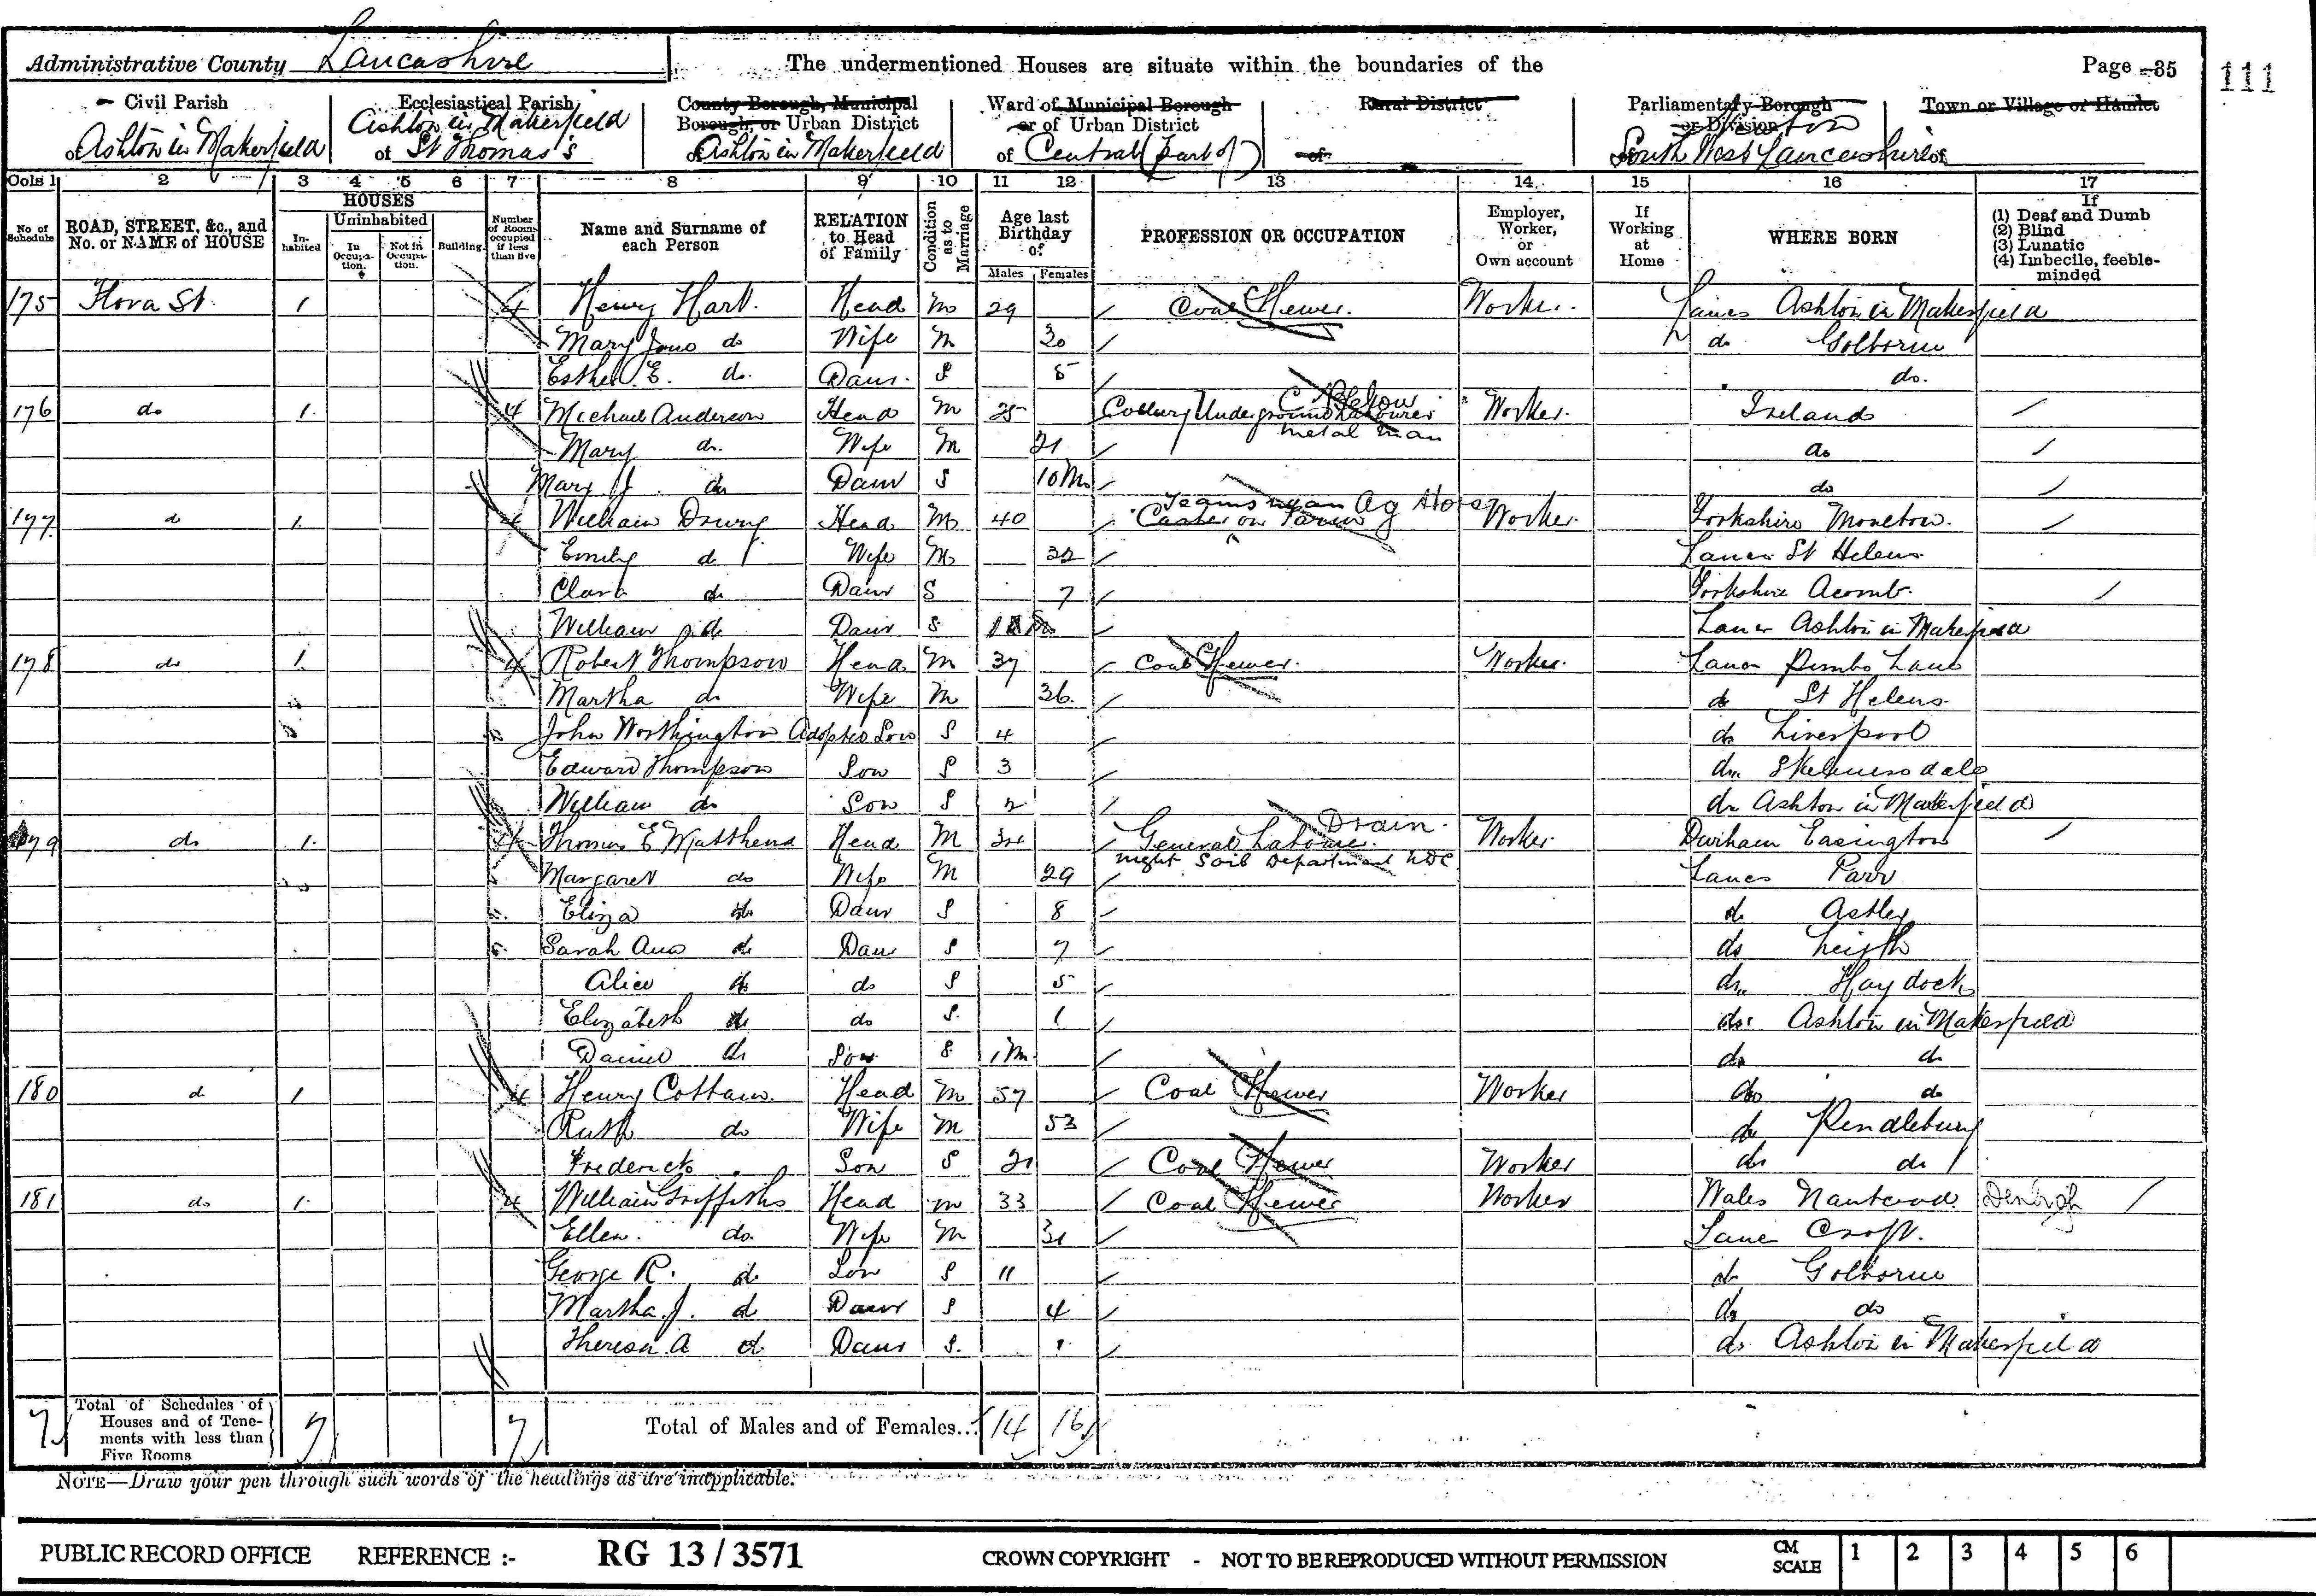 Administrative County Lancashire The undermentioned Houses are situate within the boundaries of the Page 35 111
Civil Parish Ecclesiastical Parish County Borough, Municipal Borough, or Urban District Ward of Municipal Borough or of Urban District Rural District Parliamentary Borough or Division Town or Village or Hamlet
of Ashton in Makerfield of Ashton in Makerfield St Thomas's of Ashton in Makerfield of Central (Part of) of Newton South West Lancashire of
Cols 1 2 3 4 5 6 7 8 9 10 11 12 13 14 15 16 17
No. of Schedule ROAD, STREET, &c., and No. or NAME of HOUSE HOUSES Inhabited Uninhabited In Occupation. Not in Occupation. Building. Number of Rooms occupied if less than five Name and Surname of each Person RELATION to Head of Family Condition as to Marriage Age last Birthday of Males Females PROFESSION OR OCCUPATION Employer, Worker, or Own account If Working at Home WHERE BORN If (1) Deaf and Dumb (2) Blind (3) Lunatic (4) Imbecile, feeble-minded
175 Flora St. 1 4 Henry Hart. Head M 29 Coal Hewer. Worker. Lancs Ashton in Makerfield
Mary Jane do Wife M 30 do Golborne
Esther E. do. Daur. S 5 do.
176 do 1. 4 Michael Anderson Head M 25 Colliery Underground Labourer Below metal man Worker. Ireland
Mary do. Wife M 21 do
Mary J. do Daur S 10 M. do
177 do 1. 4 William Drury Head M 40 Carter on Farm Teamsman Ag Horse Worker. Yorkshire
Emily do Wife M 32 Lancs St Helens
Clara do Daur S 7 Yorkshire Acomb.
William do Daur S Lancs Ashton in Makerfield
178 do 1. 4 Robert Thompson Head M 37 Coal Hewer. Worker. Lancs Pimbo Lane
Martha do Wife M 36. do St Helens.
John Worthington Adopted Son S 4 do Liverpool
Edward Thompson Son S 3 do Skelmersdale
William do Son S 2 do Ashton in Makerfield
179 do 1. 4 Thomas E Matthews Head M 34 General Labourer. Drain. Worker. Durham Easington
Margaret do Wife M 29 night Soil Department UDC Lancs Parr
Eliza do Daur S 8 do Astley
Sarah Ann do Daur S 7 do Leigh
Alice do do S 5 do Haydock
Elizabeth do do S. 1 do Ashton in Makerfield
Daniel do Son S. 1 M. do do
180 do 1 4 Henry Cottam. Head M 57 Coal Hewer Worker do do
Ruth do Wife M 53 do Pendlebury
Frederick Son S 21 Coal Hewer Worker do do
181 do 1. 4 William Griffiths Head M 33 Coal Hewer Worker Wales Denbigh
Ellen. do. Wife M 31 Lancs Croft.
George R. do Son S 11 do Golborne
Martha. J. do Daur S 4 do do
Theresa A do Daur S. 1 do Ashton in Makerfield
7 Total of Schedules of Houses and of Tenements with less than Five Rooms 7 7 Total of Males and of Females... 14 16
NOTE—Draw your pen through such words of the headings as are inapplicable.
PUBLIC RECORD OFFICE REFERENCE :- RG 13 / 3571 CROWN COPYRIGHT - NOT TO BE REPRODUCED WITHOUT PERMISSION CM SCALE 1 2 3 4 5 6